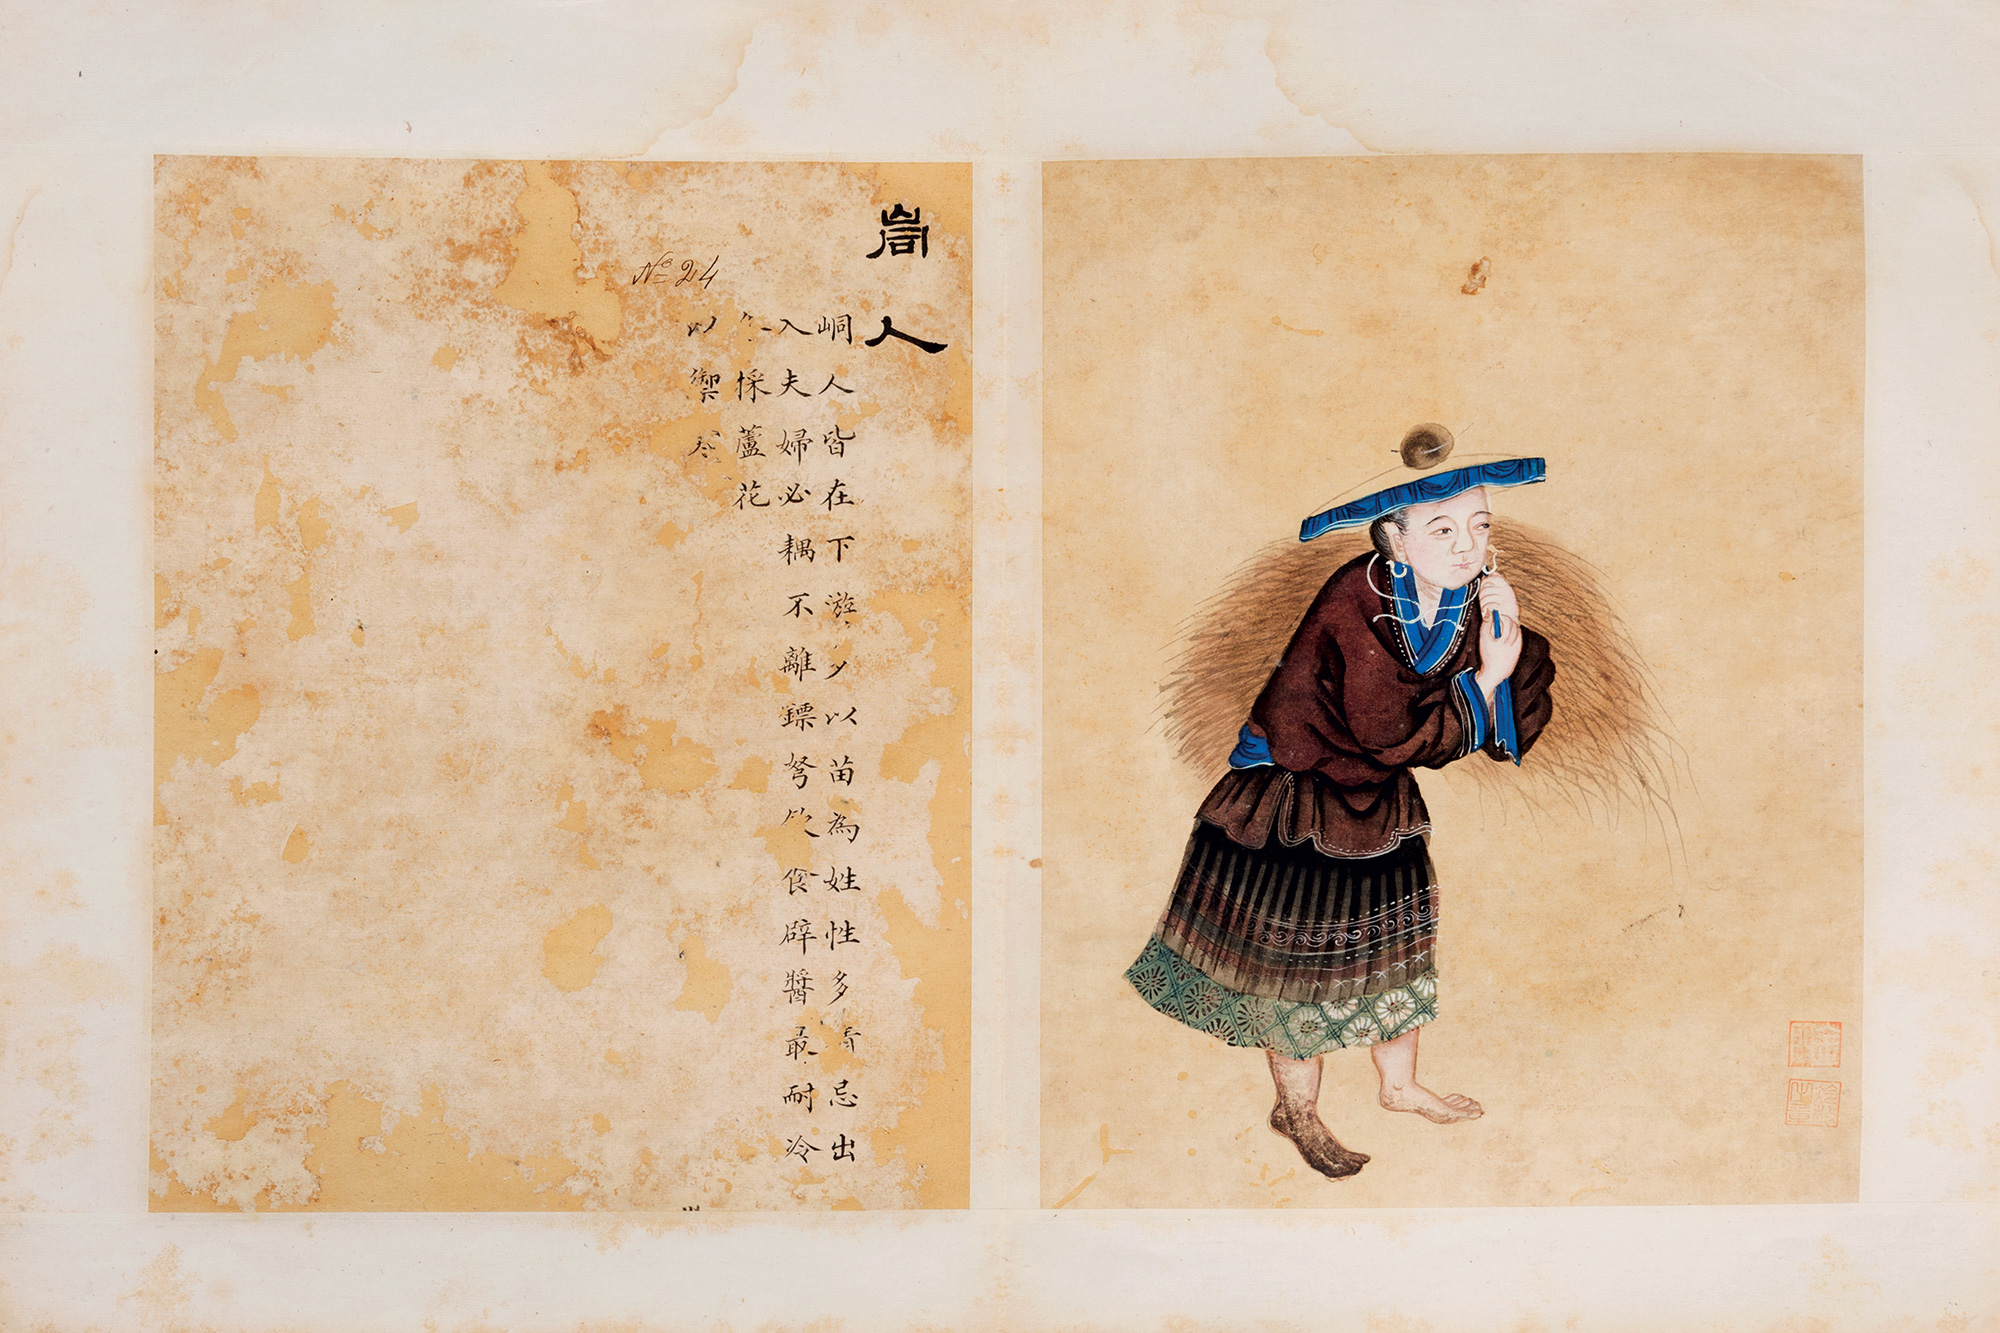 峝人
№ 24
峒人皆在下游多以苗為姓性多忌出
入夫婦必耦不離鏢弩飲食辟醬最耐冷
採蘆花
以禦冬